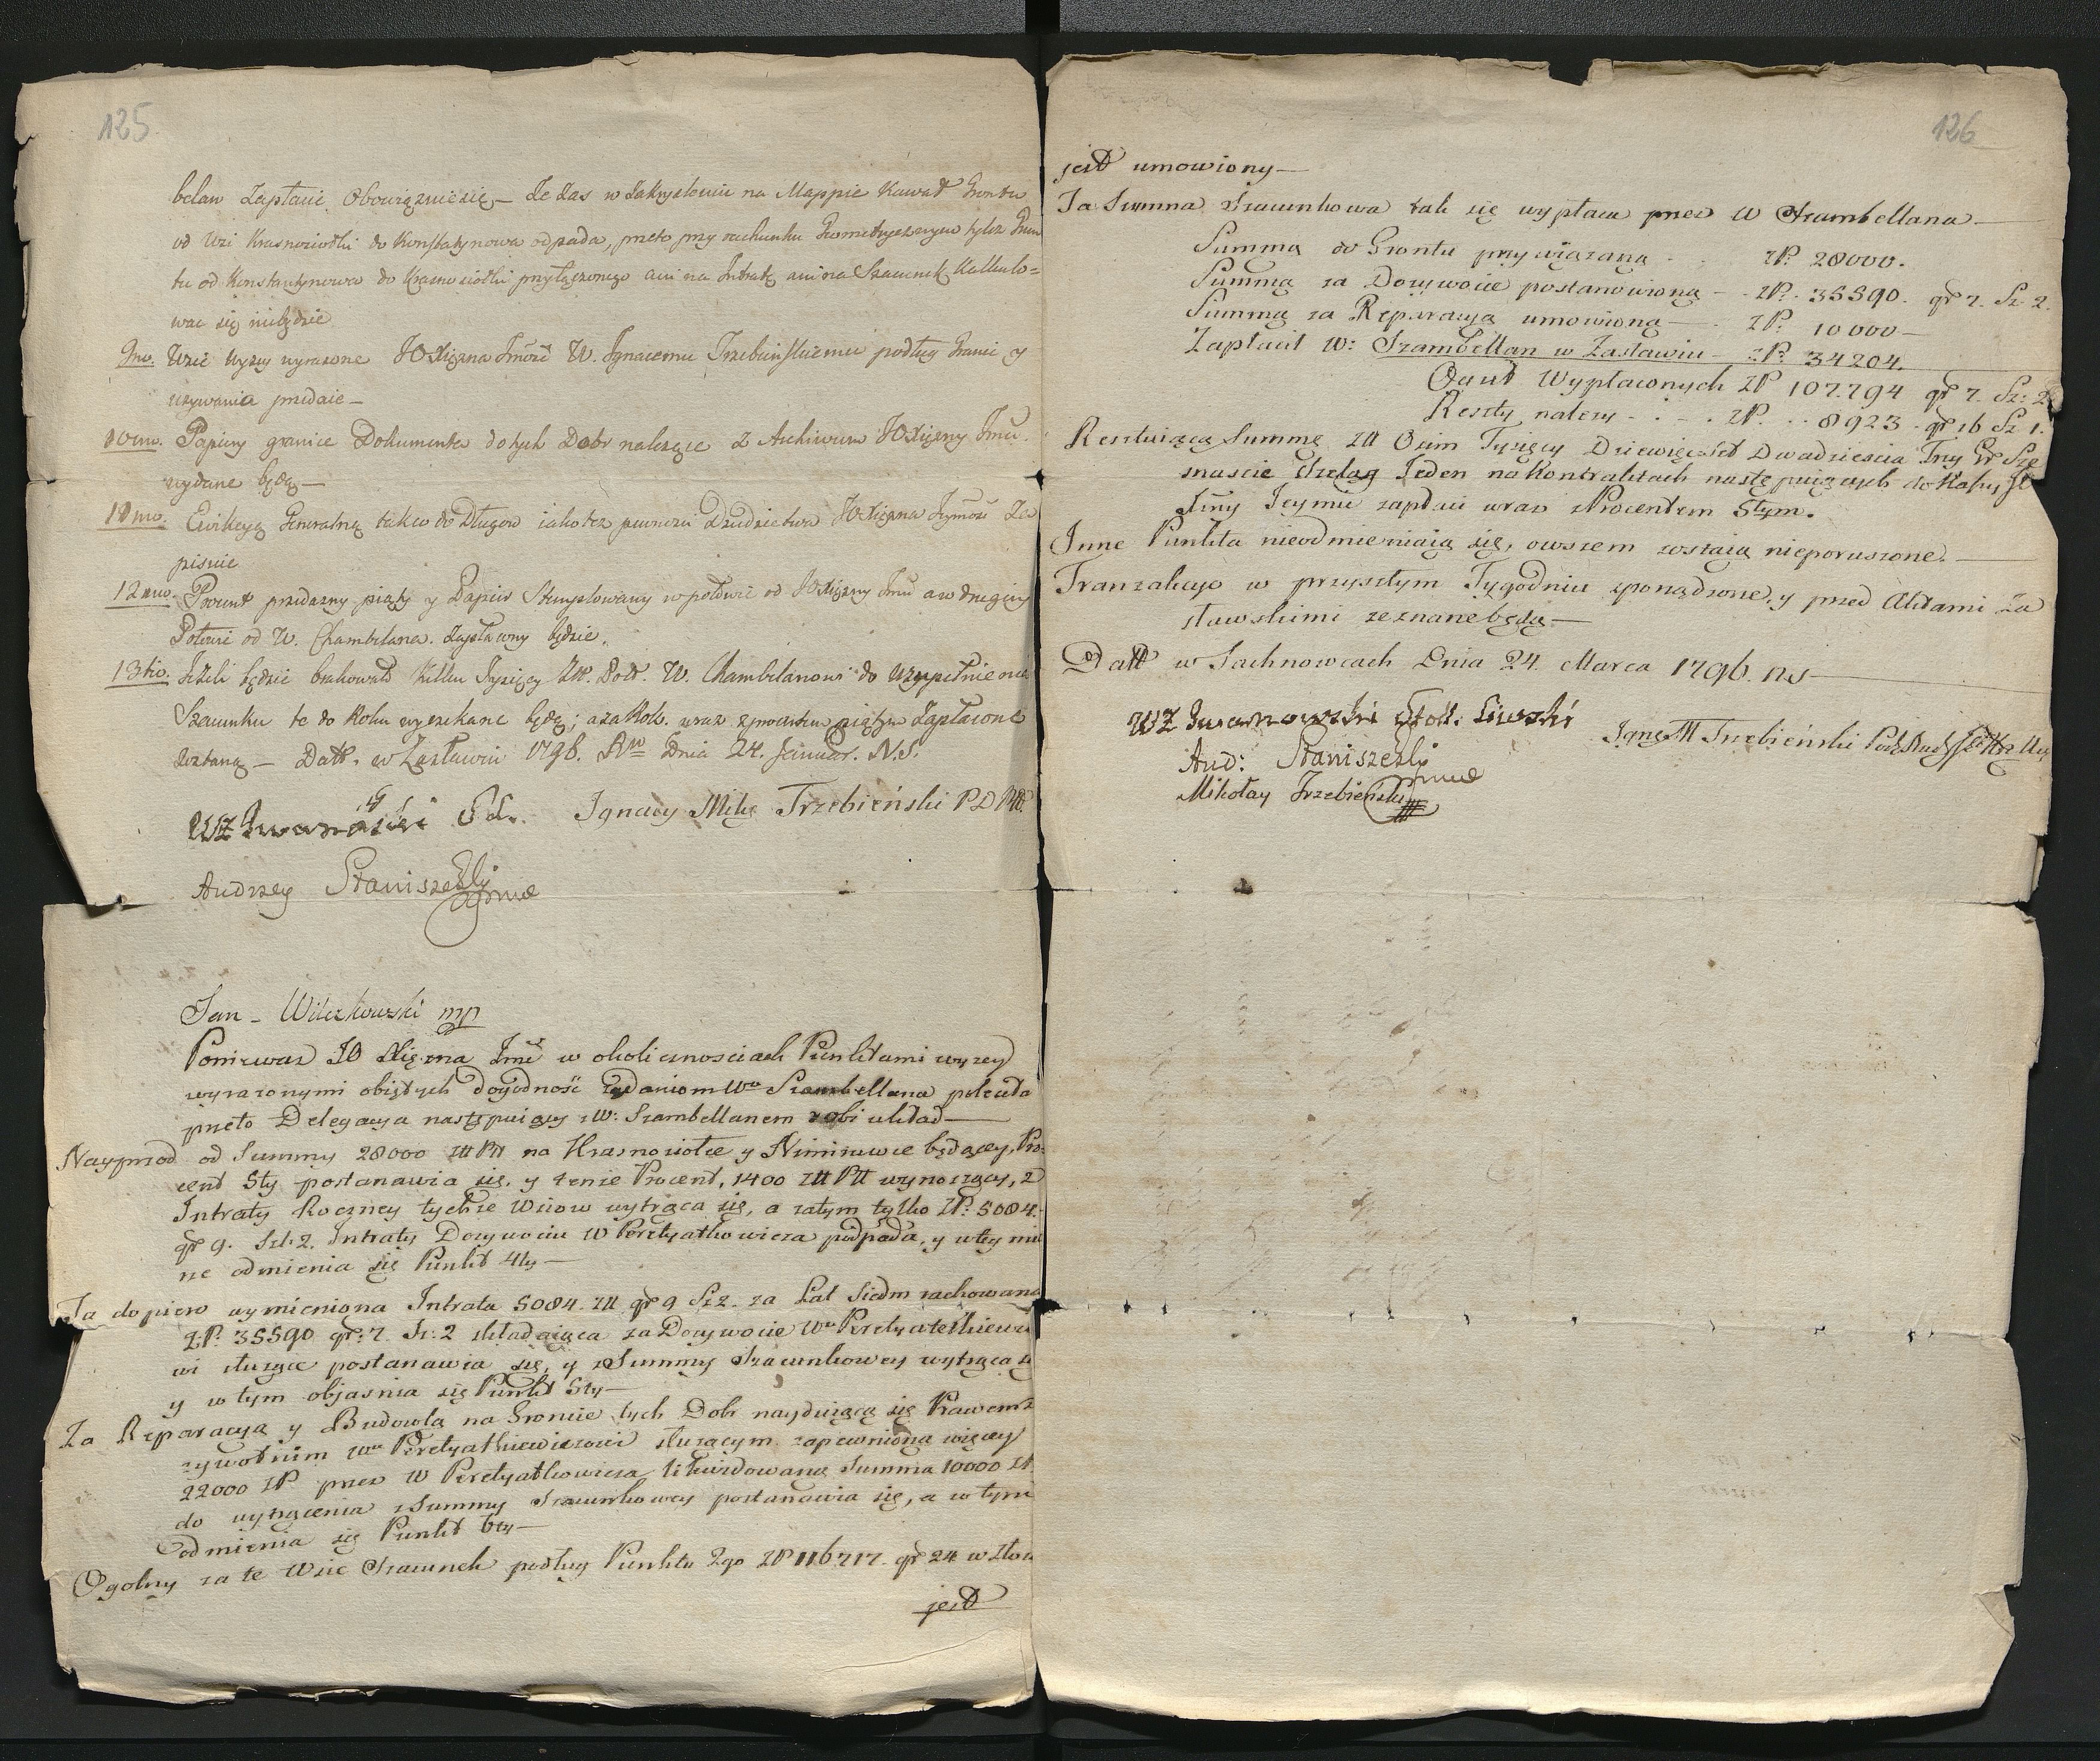 125
belan Zapłacić Obowiązuie się – Ze zas w Zakrysleniu na Mappie Kawał Gruntu
od Wsi Krasnosiołki do Konstatynowa odpada, przeto przy rachunku Geometrycznym tyleż Grun
tu od Konstantynowa do Krasnosiołki przyłączonego ani na Intratę ani na Szacunek Kalkulo=
wac się niebędzie
9no. Wsie wyzey wyrazone JO Xiężna Jmść W. Ignacemu Trzebinskiemu podług Granic y
uzywania przedaie –
10mo. Papiery granice Dokumenta do tych Dobr należące z Archiwum JO Xiężny Jmci
wydane będą –
11mo. Ewikcyą Generalną tak co do Długow iako tez pewnosci Dziedzictwa JO Xiężna Jeymość Za
pisuie
12mo. Procent przedazny piąty y Papier Stemplowany w połowie od JO Xiężny Jmci a w drugiey
Połowie od W. Chambelana. Zapłacony będzie.
13tio. Jeżeli będzie brakowało Kilku Tysięcy Zł. Pols. W. Chambelanowi do uzupełnienia
Szacunku te do Roku wyczekane będą; a za Rok. wraz z procentem piątym Zapłacone
zostaną – Datt. w Zasławiu 1796. Ro Dnia 24. Januar. N.S.
WZ Iwanowski Ignacy Mik Trzebieński P D
Andrzey Staniszeski mp
Jan – Wilczkowski mp
Poniewaz JO Xiężna Jmć w okolicznosciach Punktami wyzey
wyrazonymi obiętych dogodność ządaniom Wo Szambellana poleciła
przeto Delegacya następuiący z W: Szambellanem robi układ –
Nayprzod od Summy 28000 Zll Pll na Krasnosiołce y Nimirowce będącey, Pro
cent 5ty postanawia się, y tenże Procent, 1400 Zll Pll wynoszący, z
Intraty Roczney tychże Wsiow wytrąca się, a zatym tylko ZP. 5084.
gr 9. Szl: 2. Intraty Dozywociu W Peretyatkowicza podpada, y w tey mie
rze odmienia się Punkt 4ty –
Ta dopiero wymieniona Intrata 5084. Zll gr 9 Sz 2. za Lat Siedm rachowana
ZP. 35590 gr: 7. Sz: 2 składaiąca za Dozywocie Wu Peretyatkiewi
wi służące postanawia się, y z Summy Szacunkowey wytrąca się
y w tym objasnia się Punkt 5ty –
Za Reparacyą y Budowlą na Gruncie tych Dobr nayduiącą się Prawem
zywotnim Wu Peretyatkiewiczowi służącym zapewnioną więcey
22000 ZP przez W Peretyatkowicza likwidowaną Summa 10000 Zł
do wytrącenia z Summy Szacunkowey postanawia się, a w tym
odmienia się Punkt 6ty –
Ogolny za te Wsie Szacunek podług Punktu 2go ZP 116717. gr 24 w
jest
126
jest umowiony –
Ta Summa Szacunkowa tak się wypłaca przez W Szambellana –
Summą do Gruntu przywiązaną – ZP. 28000.
Summą za Dozywocie postanowioną – ZP. 35590. gr 7. Sz 2.
Summą za Reparacyą umowioną – ZP. 10000 –
Zapłacił W: Szambellan w Zasławiu – ZP. 34204.
Wypłaconych ZP 107.794 gr 7. Sz: 2
Reszty nalezy – ZP. 8923 gr 16 Sz 1.
Resztuiącą Summę Zll Osim Tysięcy Dziewięćset Dwadziescia Trzy Gr Sze
snascie Szeląg Jeden na Kontraktach następuiących do Kassy JO
Xżny Jeymci zapłaci wraz z Procentem 5tym.
Inne Punkta nieodmieniaią się, owszem zostaią nieporuszone. –
Tranzakcye w przyszłym Tygodniu sporządzone, y przed Aktami Za
sławskimi zeznane będą –
Datt w Sachnowcach Dnia 24. Marca 1796. ns –
WZ Iwanowski
And: Staniszeski mp
Mikołay Trzebieński
Igna M Trzebieński